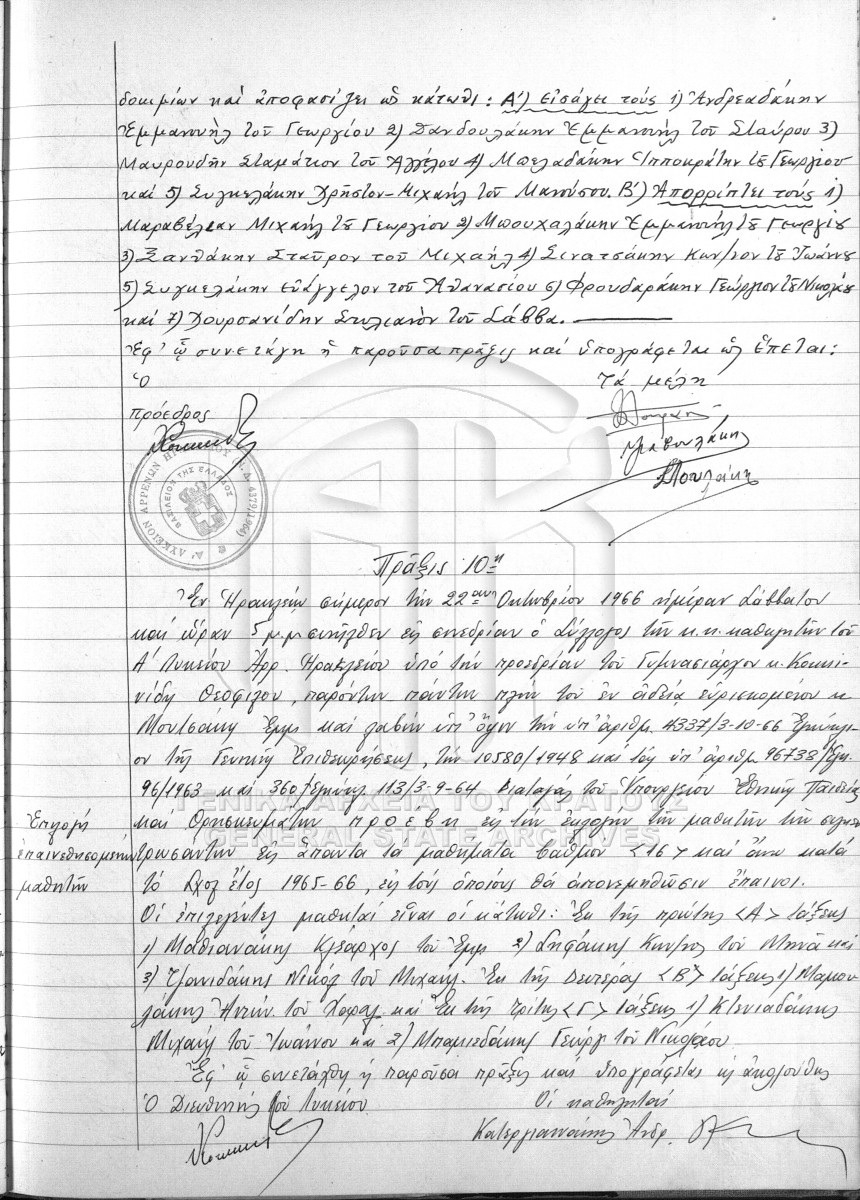 δοκιμίων καὶ ἀποφασίζει ὡς κάτωθι: Α') Εἰσάγει τούς 1) Ἀνδρεαδάκην
Ἐμμανουὴλ τοῦ Γεωργίου 2) Δανδουλάκην Ἐμμανουὴλ τοῦ Σταύρου 3)
Μαυρουδῆν Σταμάτιον τοῦ Ἀγγέλου 4) Μπελαδάκην Ἱπποκράτην τοῦ Γεωργίου
καὶ 5) Συγκελάκην Χρῆστον-Μιχαὴλ τοῦ Μανούσου. Β') Ἀπορρίπτει τούς 1)
Μιχαὴλ τοῦ Γεωργίου 2) Μπουχαλάκην Ἐμμανουὴλ τοῦ Γεωργίου
3) Ξανθάκην Σταῦρον τοῦ Μιχαὴλ 4) Σινατσάκην Κων/νον τοῦ Ἰωάννου
5) Συγκελάκην Εὐάγγελον τοῦ Ἀθανασίου 6) Φρουδαράκην Γεώργιον τοῦ Νικολάου
καὶ 7) Χουρσανίδην Στυλιανὸν τοῦ Σάββα.
Ἐφ' ᾧ συνετάγη ἡ παροῦσα πρᾶξις καὶ ὑπογράφεται ὡς ἕπεται:
Ὁ
Τὰ μέλη
πρόεδρος
ΒΑΣΙΛΕΙΟΝ ΤΗΣ ΕΛΛΑΔΟΣ
Πρᾶξις 10η
Ἐν Ἡρακλείῳ σήμερον τὴν 22αν Ὀκτωβρίου 1966 ἡμέραν Σάββατον
καὶ ὥραν 5 μ.μ. συνῆλθεν εἰς συνεδρίαν ὁ Σύλλογος τῶν κ.κ. καθηγητῶν τοῦ
Α' Λυκείου Ἀρρ. Ἡρακλείου ὑπὸ τὴν προεδρίαν τοῦ Γυμνασιάρχου κ. Κοκκι-
νίδη Θεοφίλου, παρόντων πάντων πλὴν τοῦ ἐν ἀδείᾳ εὑρισκομένου κ.
Μουτσάκη Ἐμμ. καὶ λαβὼν ὑπ' ὄψιν τὴν ὑπ' ἀριθμ. 4337/3-10-66 Ἐγκύκλι-
ον τῆς Γενικῆς Ἐπιθεωρήσεως, τὴν 10580/1948 καὶ τὰς ὑπ' ἀριθμ. 96738/Ἐγκ.
96/1963 καὶ 360/ἐγκύκλ. 113/3-9-64 Διαταγὰς τοῦ Ὑπουργείου Ἐθνικῆς Παιδείας
ΓΕΝΙΚΑ ΑΡΧΕΙΑ ΤΟΥ ΚΡΑΤΟΥΣ
καὶ Θρησκευμάτων προέβη εἰς τὴν ἐκλογὴν τῶν μαθητῶν τῶν συγκεν-
GENERAL STATE ARCHIVES
Ἐπιλογὴ
ἐπαινεθησομένων
μαθητῶν
τρωσάντων εἰς ἅπαντα τὰ μαθήματα βαθμὸν <16> καὶ ἄνω κατὰ
τὸ σχολ. ἔτος 1965-66, εἰς τοὺς ὁποίους θὰ ἀπονεμηθῶσιν ἔπαινοι.
Οἱ ἐπιλεγέντες μαθηταὶ εἶναι οἱ κάτωθι: Ἐκ τῆς πρώτης <Α> τάξεως
1) Μαθιανάκης Κλέαρχος τοῦ Ἐμμ. 2) Σηφάκης Κων/νος τοῦ Μηνᾶ καὶ
3) Τζανιδάκης Νικόλ. τοῦ Μιχαήλ. Ἐκ τῆς Δευτέρας <Β> τάξεως 1) Μαμου-
λάκης Ἀντών. τοῦ καὶ Ἐκ τῆς τρίτης <Γ> τάξεως 1) Κτενιαδάκης
Μιχαὴλ τοῦ Ἰωάννου καὶ 2) Μπαμιεδάκης Γεώργ. τοῦ Νικολάου.
Ἐφ' ᾧ συνετάχθη ἡ παροῦσα πρᾶξις καὶ ὑπογράφεται ὡς ἀκολούθως
Ὁ Διευθυντὴς τοῦ Λυκείου
Οἱ καθηγηταὶ
Κατεργιαννάκης Ἀνδρ.